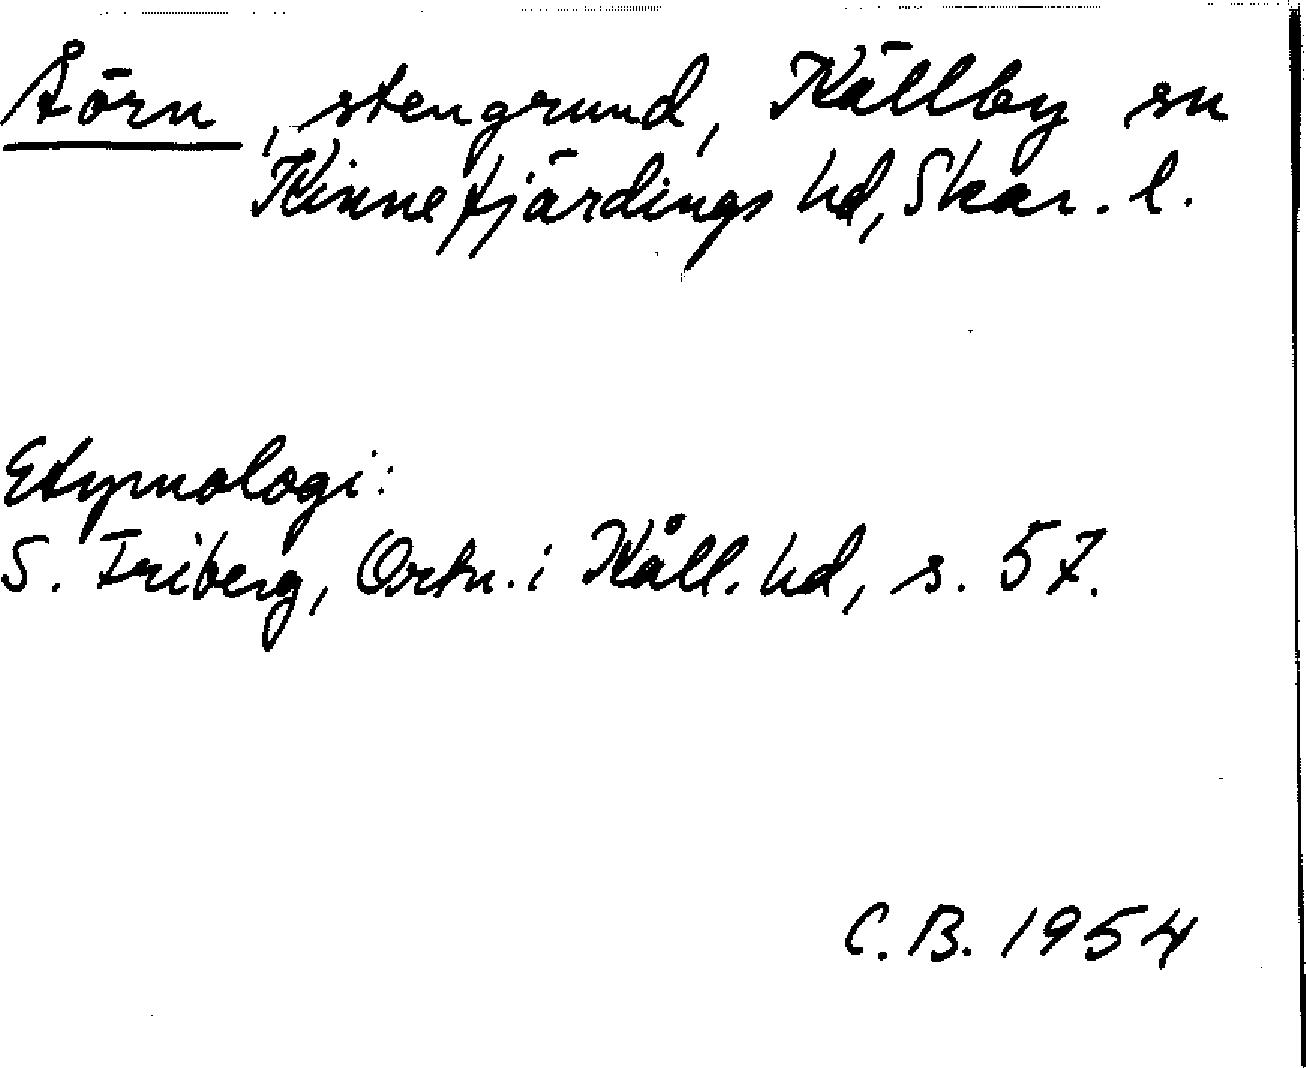 Åörn, stengrund, Källby sn
Kinnefjärdings hd, Skar. l.
Etymologi:
S. Friberg, Ortn. i Kåll. hd, s. 57.
C. B. 1954